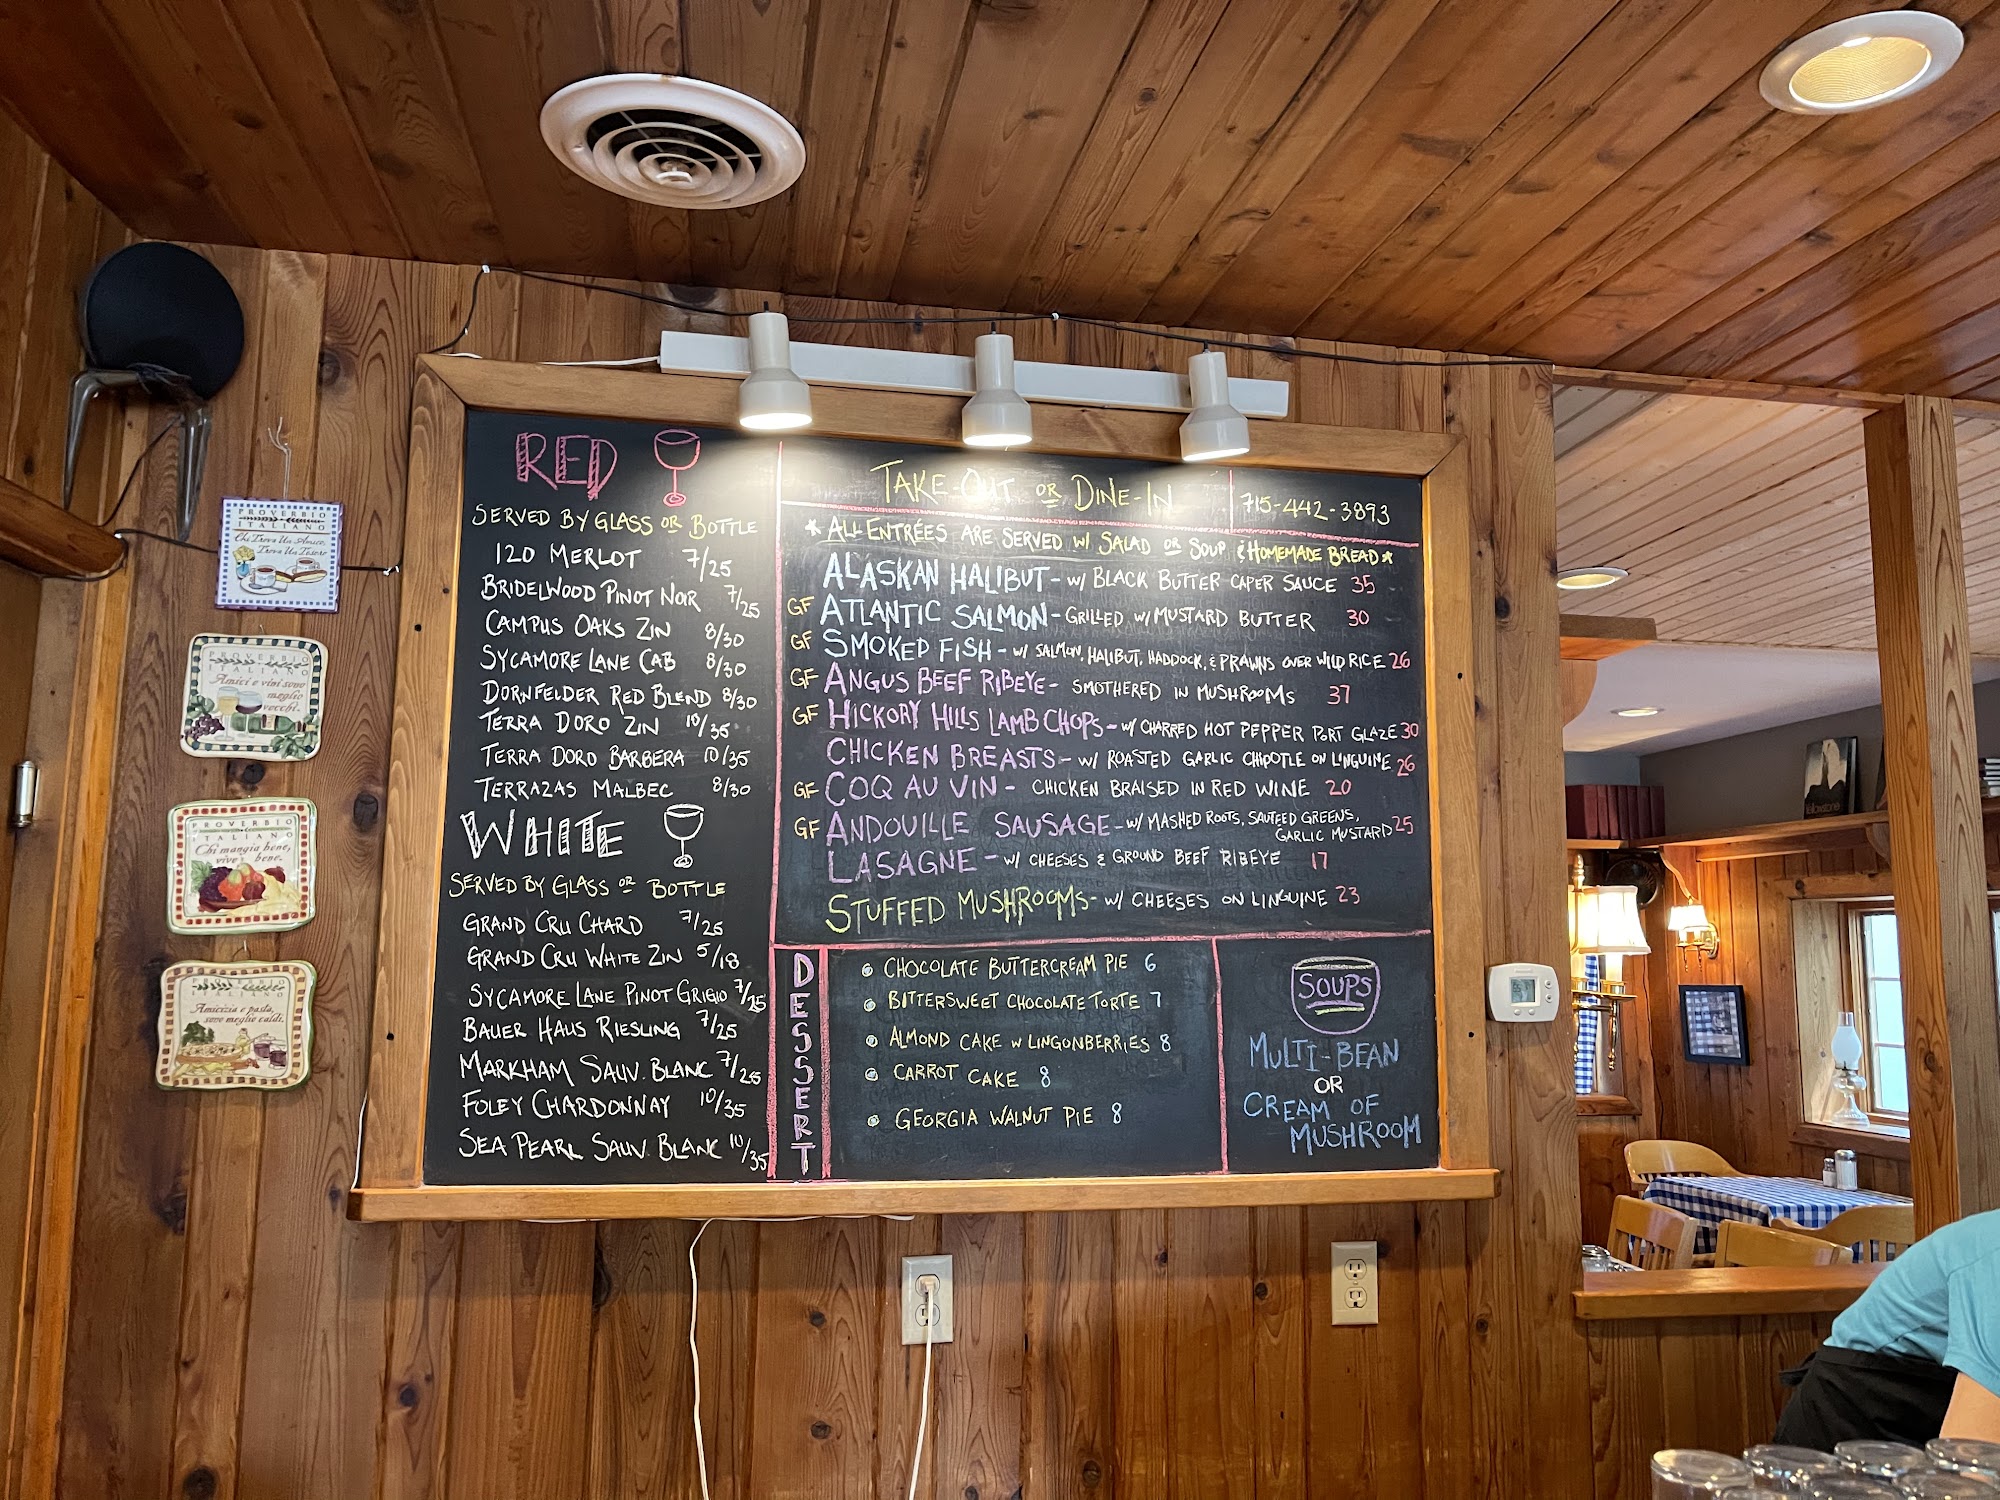 PROVERBIO
ITALIANO
Chi Trova Un Amico,
Trova Un Tesoro
PROVERBIO
ITALIANO
Amici e vini sono
meglio
vecchi.
PROVERBIO
ITALIANO
Chi mangia bene,
vive bene.
PROVERBIO
ITALIANO
Amicizia e pasta,
sono meglio caldi.
RED
SERVED BY GLASS OR BOTTLE
120 MERLOT 7/25
BRIDELWOOD PINOT NOIR 7/25
CAMPUS OAKS ZIN 8/30
SYCAMORE LANE CAB 8/30
DORNFELDER RED BLEND 8/30
TERRA DORO ZIN 10/35
TERRA DORO BARBERA 10/35
TERRAZAS MALBEC 8/30
WHITE
SERVED BY GLASS OR BOTTLE
GRAND CRU CHARD 7/25
GRAND CRU WHITE ZIN 5/18
SYCAMORE LANE PINOT GRIGIO 7/25
BAUER HAUS RIESLING 7/25
MARKHAM SAUV. BLANC 7/25
FOLEY CHARDONNAY 10/35
SEA PEARL SAUV. BLANC 10/35
TAKE-OUT OR DINE-IN
715-442-3893
* ALL ENTRÉES ARE SERVED W/ SALAD OR SOUP & HOMEMADE BREAD *
ALASKAN HALIBUT - W/ BLACK BUTTER CAPER SAUCE 35
GF ATLANTIC SALMON - GRILLED W/ MUSTARD BUTTER 30
GF SMOKED FISH - W/ SALMON, HALIBUT, HADDOCK, & PRAWNS OVER WILD RICE 26
GF ANGUS BEEF RIBEYE - SMOTHERED IN MUSHROOMS 37
GF HICKORY HILLS LAMB CHOPS - W/ CHARRED HOT PEPPER PORT GLAZE 30
CHICKEN BREASTS - W/ ROASTED GARLIC CHIPOTLE ON LINGUINE 26
GF COQ AU VIN - CHICKEN BRAISED IN RED WINE 20
GF ANDOUILLE SAUSAGE - W/ MASHED ROOTS, SAUTEED GREENS,
GARLIC MUSTARD 25
LASAGNE - W/ CHEESES & GROUND BEEF RIBEYE 17
STUFFED MUSHROOMS - W/ CHEESES ON LINGUINE 23
DESSERT
CHOCOLATE BUTTERCREAM PIE 6
BITTERSWEET CHOCOLATE TORTE 7
ALMOND CAKE W LINGONBERRIES 8
CARROT CAKE 8
GEORGIA WALNUT PIE 8
SOUPS
MULTI-BEAN
OR
CREAM OF
MUSHROOM